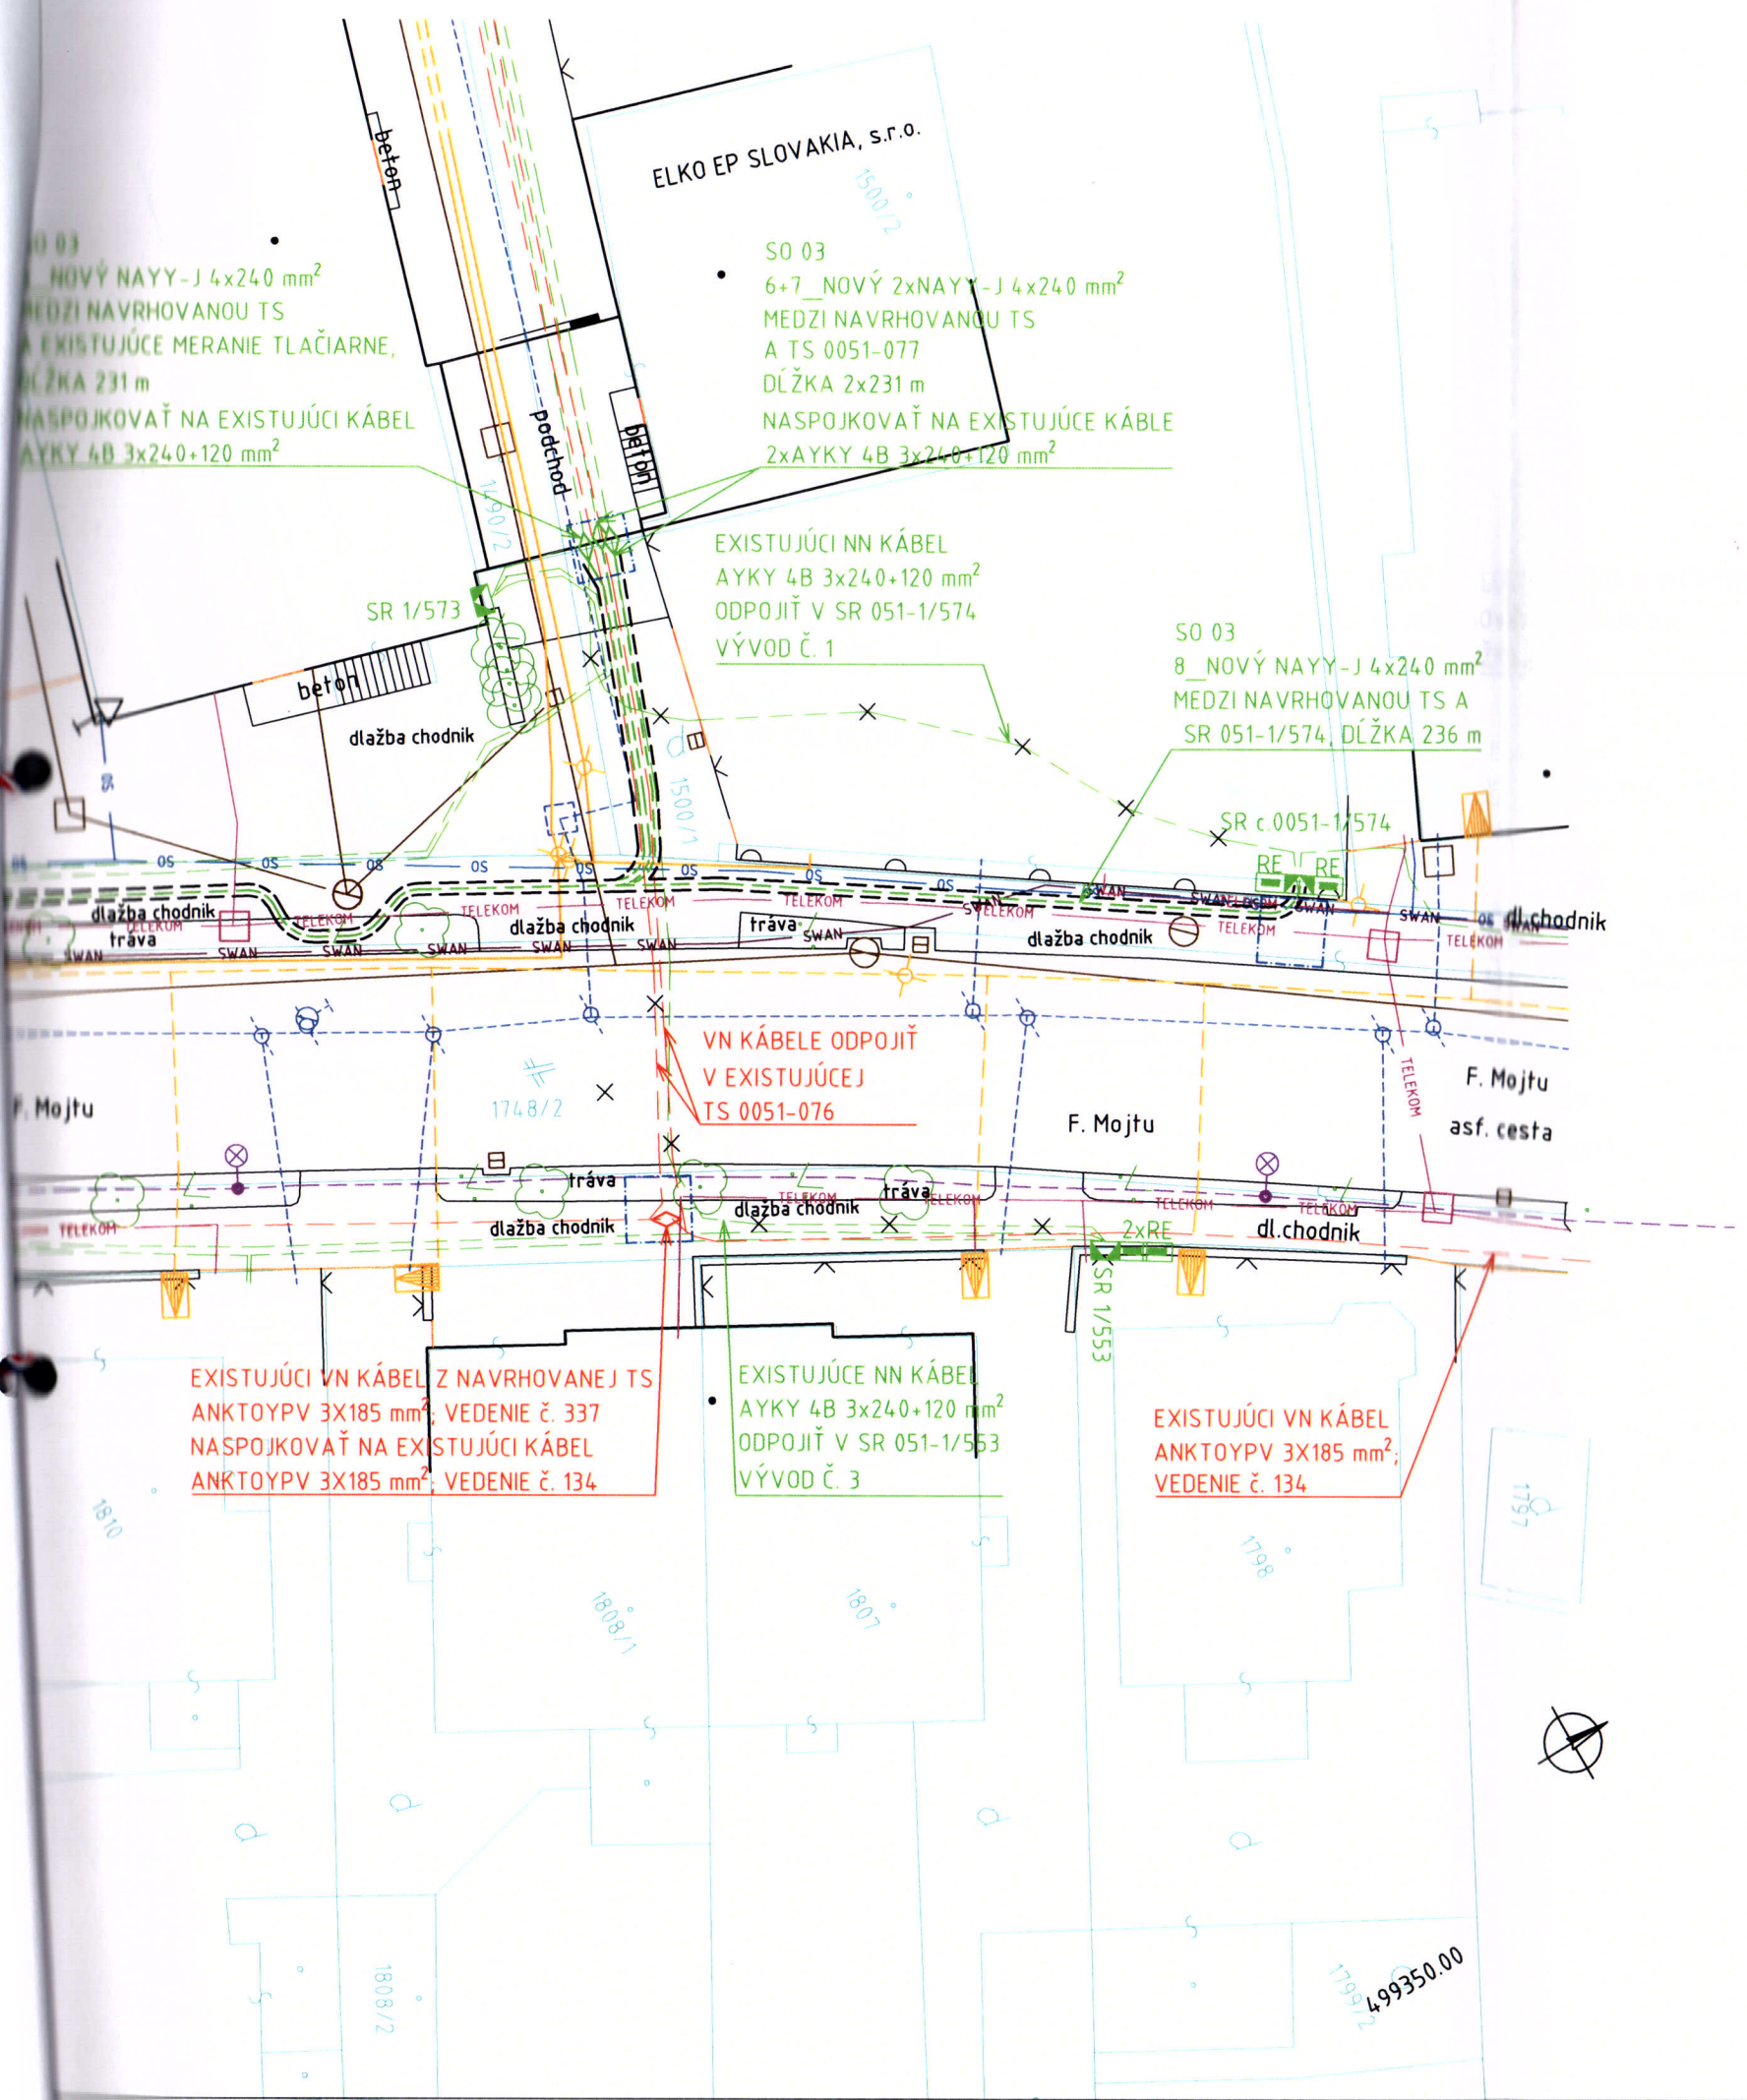 beton
ELKO EP SLOVAKIA, s.r.o.
1500/2
SO 03
NOVÝ NAYY-J 4x240 mm²
MEDZI NAVRHOVANOU TS
A EXISTUJÚCE MERANIE TLAČIARNE,
DĹŽKA 231 m
NASPOJKOVAŤ NA EXISTUJÚCI KÁBEL
AYKY 4B 3x240+120 mm²
SO 03
6+7_NOVÝ 2xNAYY-J 4x240 mm²
MEDZI NAVRHOVANOU TS
A TS 0051-077
DĹŽKA 2x231 m
NASPOJKOVAŤ NA EXISTUJÚCE KÁBLE
2xAYKY 4B 3x240+120 mm²
podchod
beton
1490/2
EXISTUJÚCI NN KÁBEL
AYKY 4B 3x240+120 mm²
ODPOJIŤ V SR 051-1/574
VÝVOD Č. 1
SR 1/573
SO 03
8_NOVÝ NAYY-J 4x240 mm²
MEDZI NAVRHOVANOU TS A
SR 051-1/574, DĹŽKA 236 m
beton
dlažba chodnik
1500/1
SR c.0051-1/574
RE RE
OS OS OS OS OS OS OS OS OS OS
SWAN SWAN SWAN SWAN SWAN
dlažba chodnik
TELEKOM TELEKOM TELEKOM TELEKOM TELEKOM TELEKOM TELEKOM TELEKOM
dl.chodnik
tráva
dlažba chodnik
tráva
SWAN
dlažba chodnik
SWAN SWAN SWAN SWAN SWAN SWAN
VN KÁBELE ODPOJIŤ
V EXISTUJÚCEJ
TS 0051-076
1748/2
F. Mojtu
F. Mojtu
TELEKOM
F. Mojtu
asf. cesta
tráva
tráva
TELEKOM TELEKOM TELEKOM TELEKOM
dlažba chodnik
TELEKOM
dlažba chodnik
2xRE
dl.chodnik
SR 1/553
EXISTUJÚCI VN KÁBEL Z NAVRHOVANEJ TS
ANKTOYPV 3X185 mm²; VEDENIE č. 337
NASPOJKOVAŤ NA EXISTUJÚCI KÁBEL
ANKTOYPV 3X185 mm²; VEDENIE č. 134
EXISTUJÚCE NN KÁBEL
AYKY 4B 3x240+120 mm²
ODPOJIŤ V SR 051-1/553
VÝVOD Č. 3
EXISTUJÚCI VN KÁBEL
ANKTOYPV 3X185 mm²;
VEDENIE č. 134
1810
1808/1
1807
1798
1797
1808/2
1799/2
499350.00